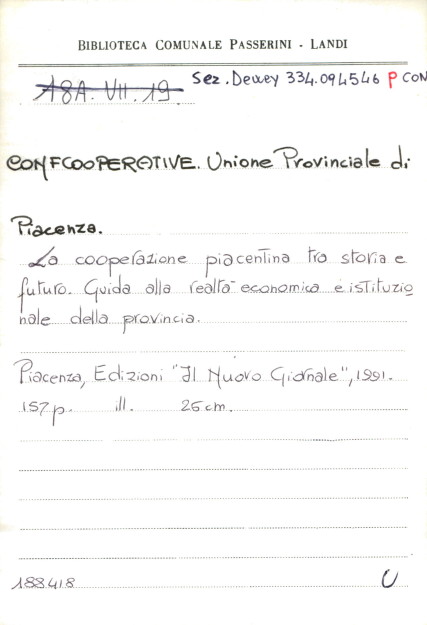 BIBLIOTECA COMUNALE PASSERINI - LANDI
A8A. VII. 19. Sez. Dewey 334.094546 P CON
CONFCOOPERATIVE. Unione Provinciale di
Piacenza.
La cooperazione piacentina tra storia e
futuro. Guida alla realtà economica e istituzio
nale della provincia.
Piacenza, Edizioni "Il Nuovo Giornale", 1991.
157 p. ill. 25 cm.
188418 U